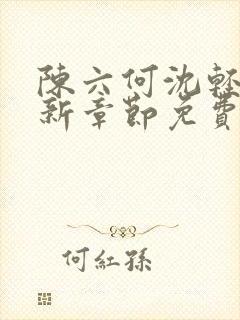 陳六何沈輕
新章節免費
何紅孫